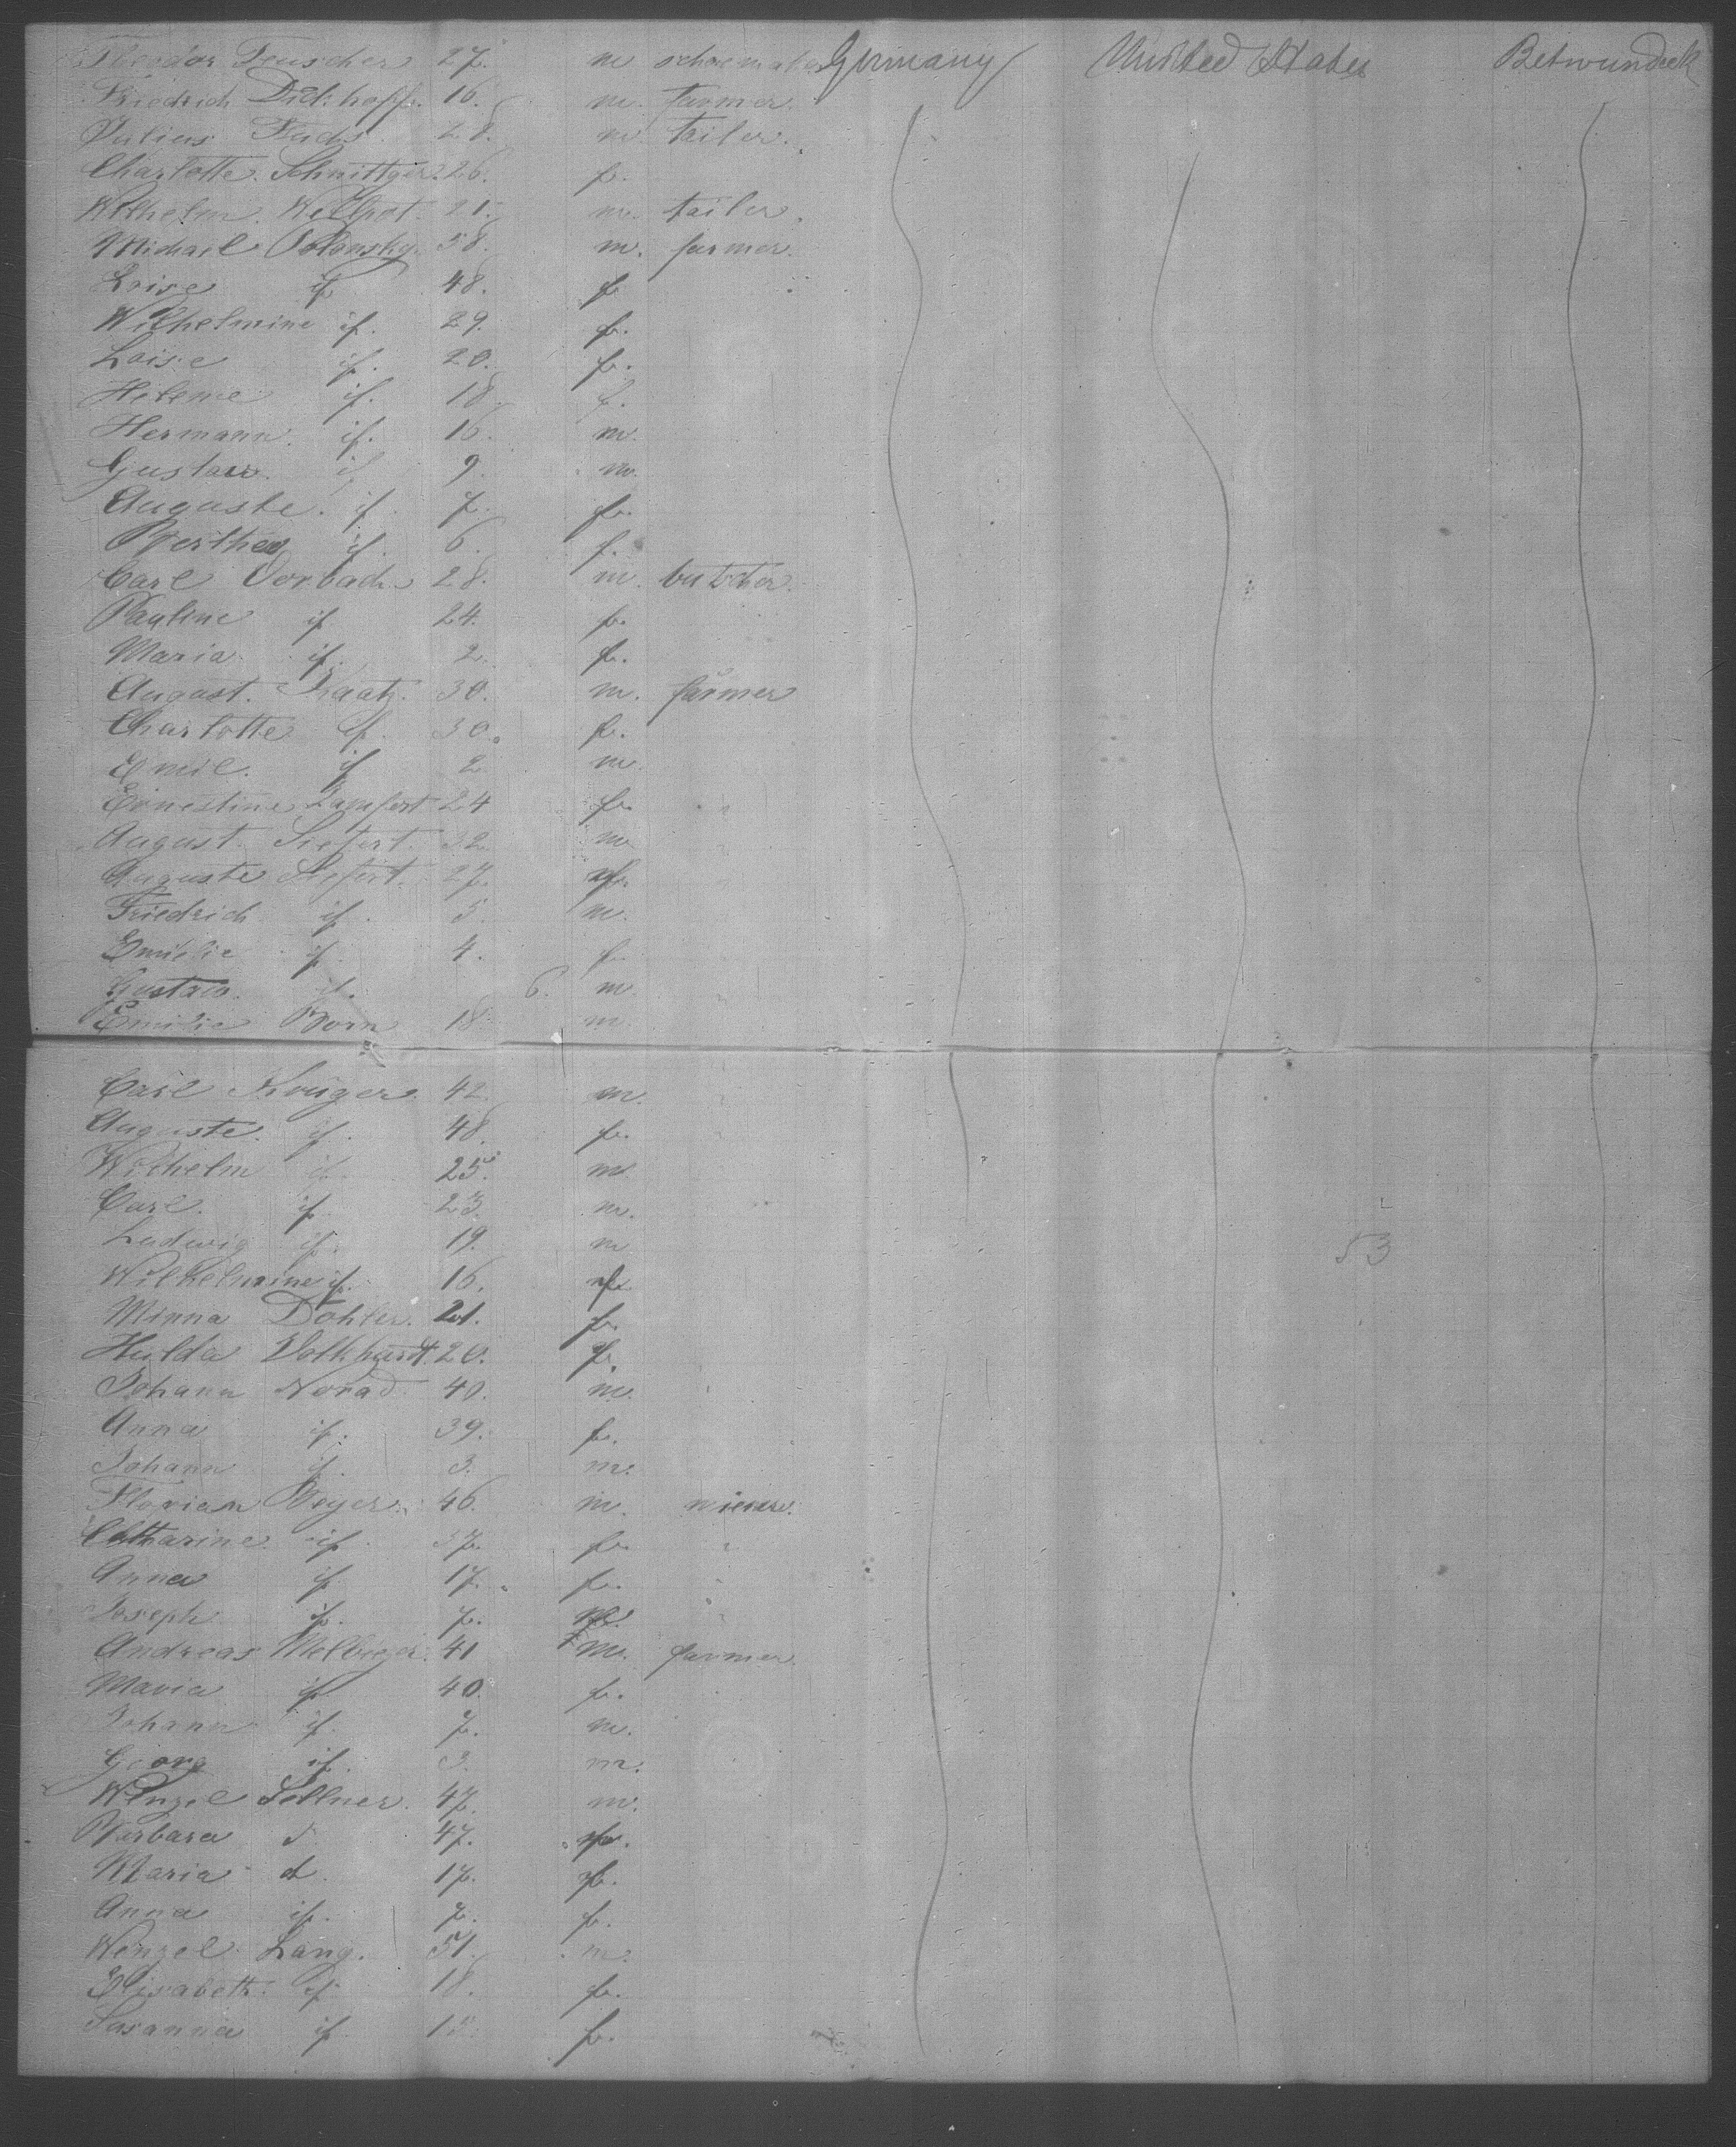 Theodor Teuscher 27. m schoemaker Germany United States Betwundeck
Friedrich Dickhoff. 16. m. farmer.
Julius Fuchs 28. m tailer.
Charlotte. Schnittger. 26. f.
Wilhelm. 21. m. tailer.
Michael Polonsky. 58. m. farmer.
Loise if 48. f
Wilhelmine if. 29. f.
Loise if. 20. f.
Helene if. 18. f.
Hermann. if. 16. m.
Gustav. if 9. m.
Auguste. if. 7. f.
Berthe if. 6. f.
Carl Vorbach. 28. m. butcher.
Pauline if 24. f.
Maria if. 2. f.
August. Raatz. 30. m. farmer
Charlotte if. 30. f.
Emil. if 2 m.
Ernestine 24 f.
August. Siefert. 32. m.
Auguste Siefert. 27. f.
Friedrich if. 5. m.
Emilie if. 4. f.
Gustav. if. 6. m.
Emilie Born 18. m.
Carl Krüger. 42. m.
Auguste. if. 48. f.
Wilhelm if. 25. m.
Carl. if. 23. m.
Ludwig if. 19. m 53
Wilhelmine if. 16. f.
Minna Döhler. 21. f.
Hulda Volkhardt. 20. f.
Johann Norad. 40. m.
Anna if. 39. f.
Johann if. 3. m.
Florian Beyer. 46. m.
Catharine. if. 37. f.
Anna if. 17. f.
Joseph if. 7. m.
Andreas 41 m. farmer.
Maria if 40. f.
Johann if. 7. m.
Georg if. 3. m.
Wenzel Sollner. 47. m.
Barbara d 47. f.
Maria d. 17. f.
Anna if. 7. f.
Wenzel Lang. 51. m.
Elisabeth. if. 18. f.
Susanna if. 15. f.